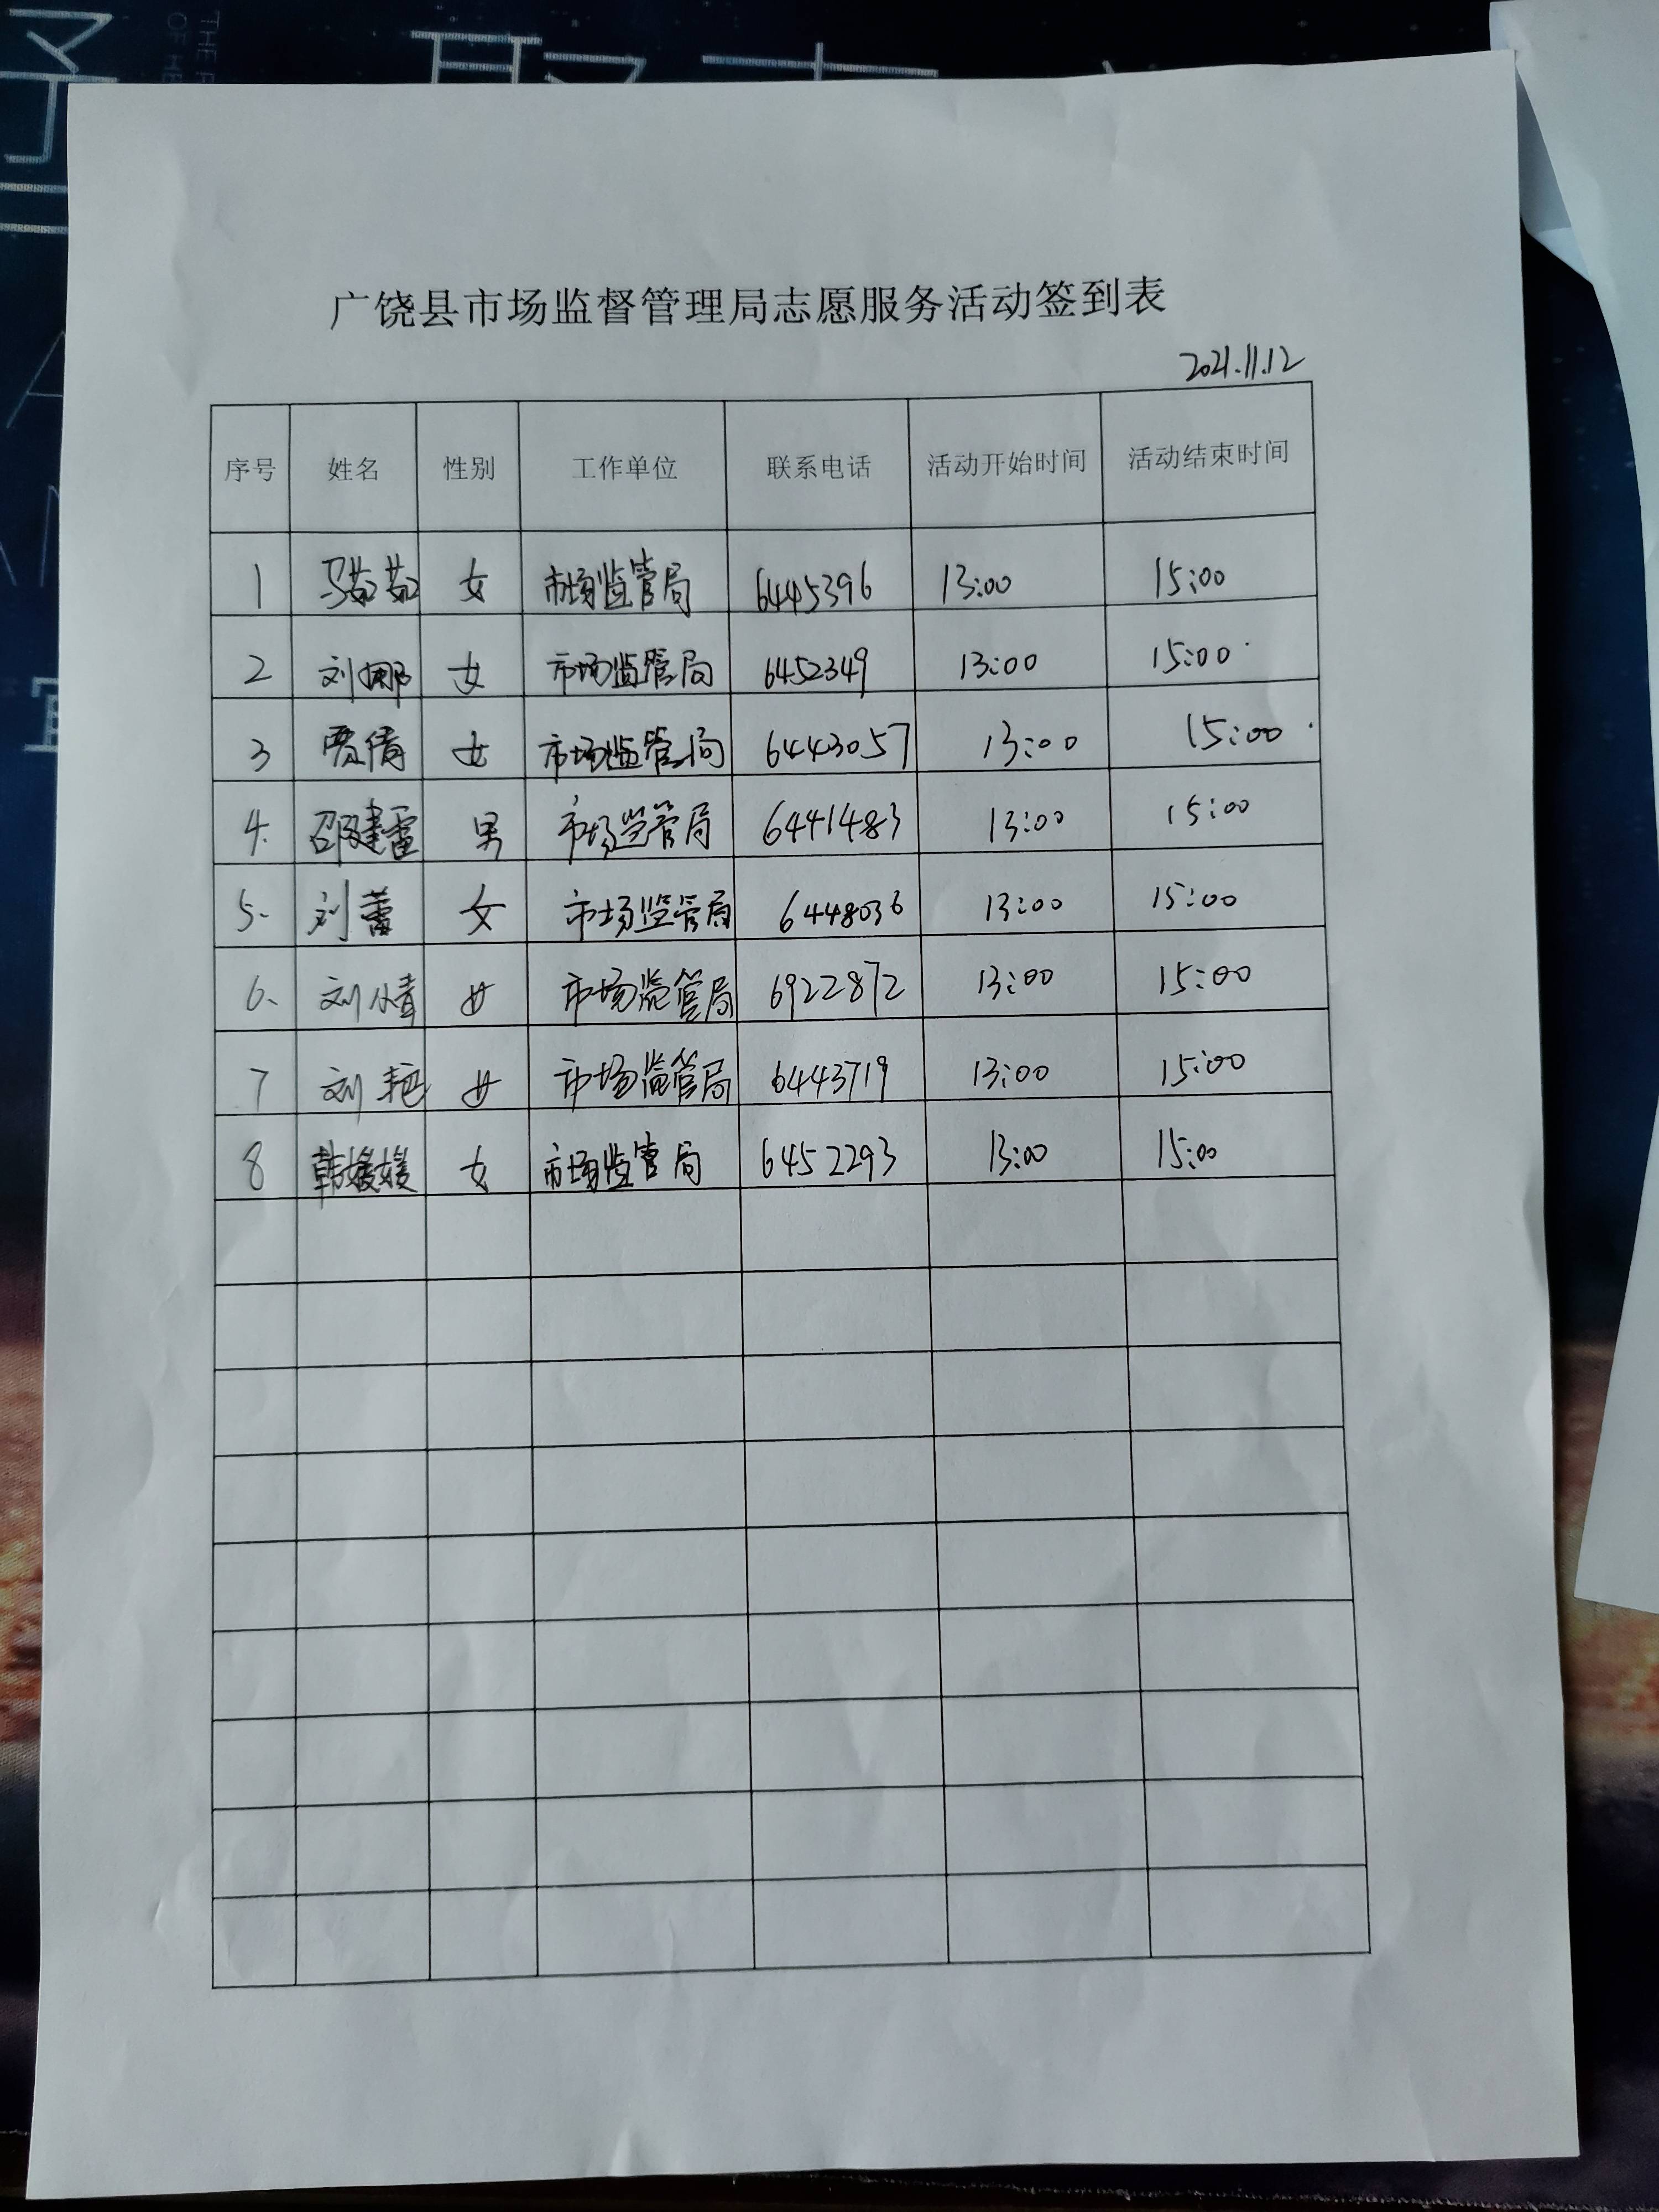 广饶县市场监督管理局志愿服务活动签到表
2021.11.12
序号 姓名 性别 工作单位 联系电话 活动开始时间 活动结束时间
1 马茹茹 女 市场监管局 6445396 13:00 15:00
2 刘娜 女 市场监管局 6452349 13:00 15:00
3 贾倩 女 市场监管局 6443057 13:00 15:00
4. 邵建雷 男 市场监管局 6441483 13:00 15:00
5. 刘蕾 女 市场监管局 6448036 13:00 15:00
6、 刘倩 女 市场监管局 6922872 13:00 15:00
7 刘艳 女 市场监管局 6443719 13:00 15:00
8 韩媛媛 女 市场监管局 6452293 13:00 15:00